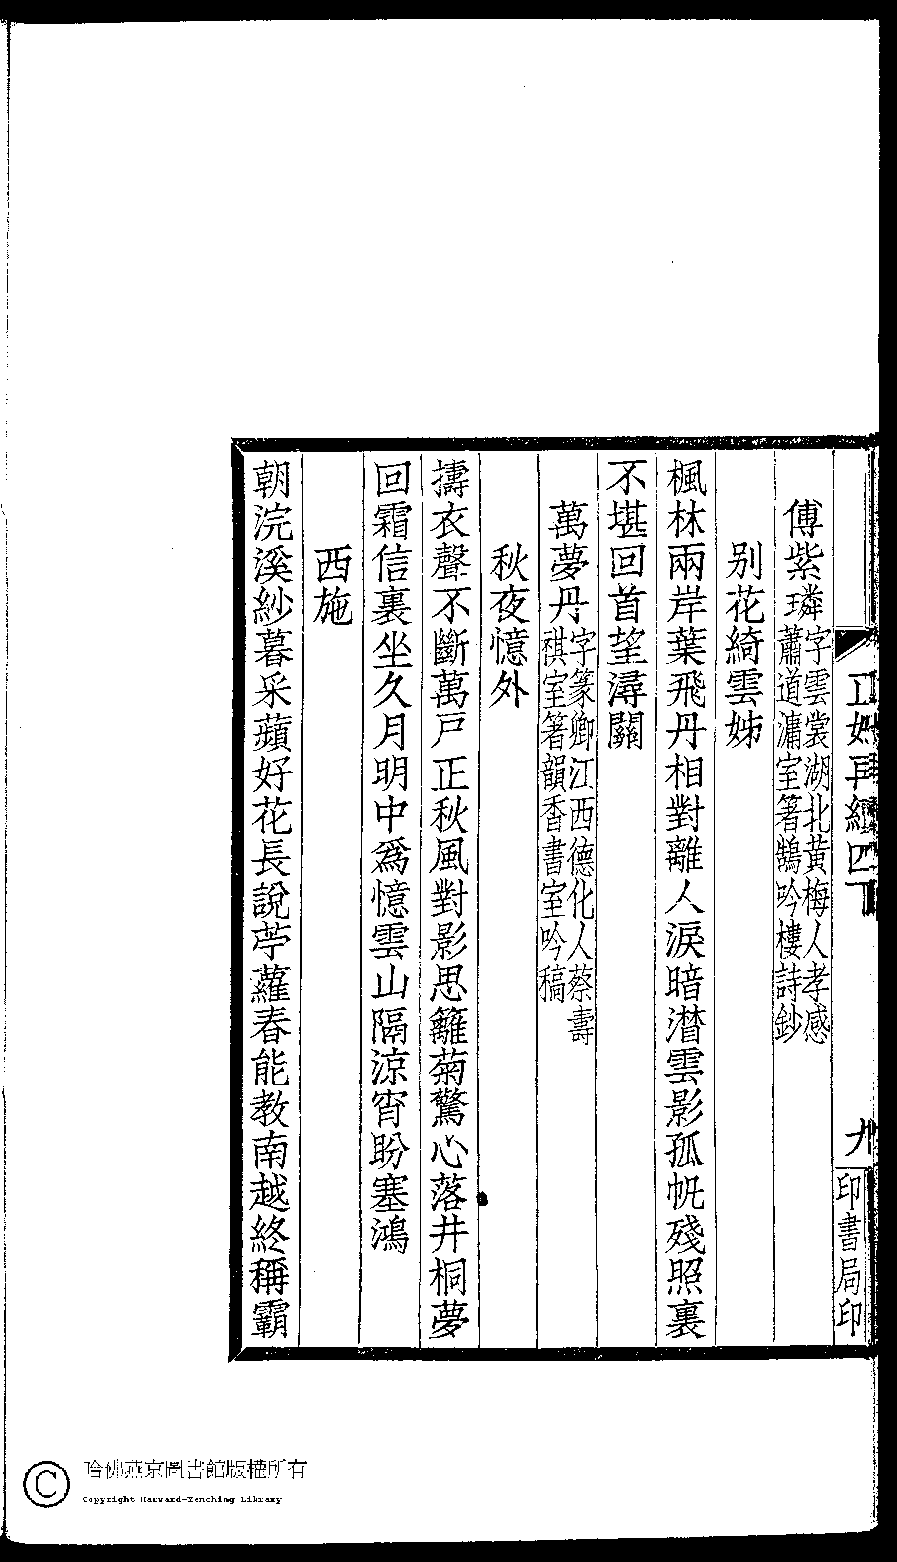 印書局印
傅紫璘字雲裳湖北黃梅人孝感
蕭道漘室箸鵠吟樓詩鈔
別花綺雲姊
楓林兩岸葉飛丹相對離人淚暗潸雲影孤帆殘照裏
不堪回首望潯關
萬夢丹字篆卿江西德化人蔡壽
祺室箸韻香書室吟稿
秋夜憶外
擣衣聲不斷萬戶正秋風對影思籬菊驚心落井桐夢
回霜信裏坐久月明中爲憶雲山隔涼宵盼塞鴻
西施
朝浣溪紗暮采蘋好花長說苧蘿春能教南越終稱霸
哈佛燕京圖書館版權所有
Copyright Harvard-Yenching Library